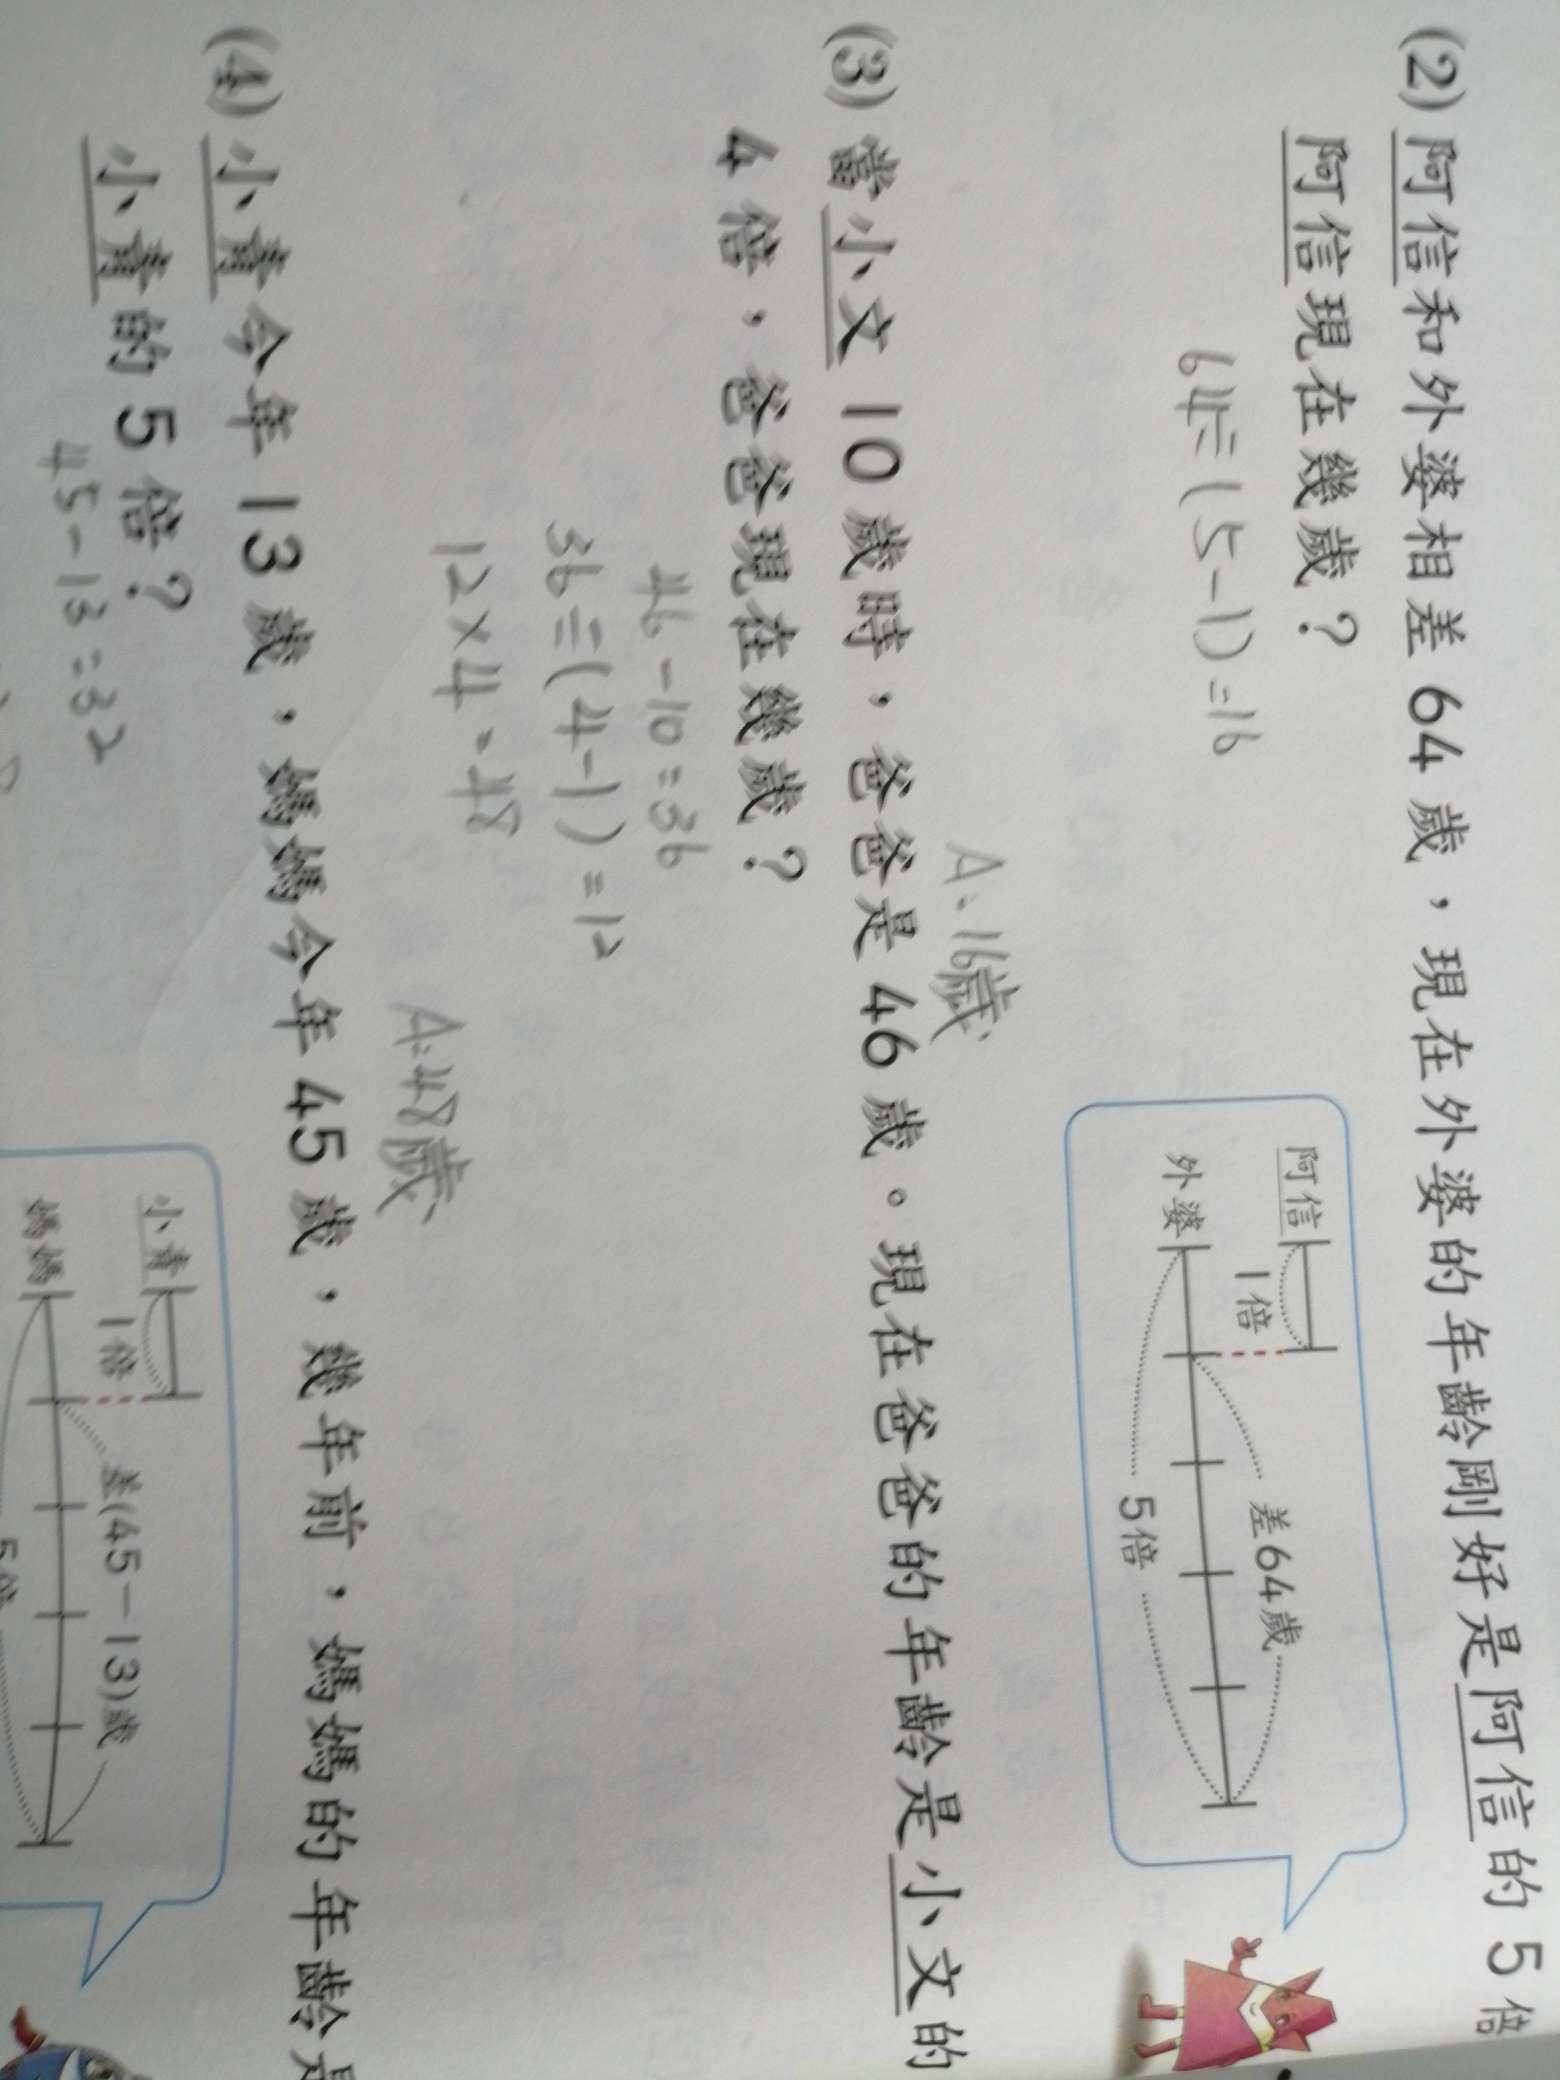 (2) 阿信和外婆相差 64 歲，現在外婆的年齡剛好是阿信的 5 倍
阿信現在幾歲？
64÷(5-1)=16
A:16歲
阿信
1倍
差64歲
外婆
5倍
(3) 當小文 10 歲時，爸爸是 46 歲。現在爸爸的年齡是小文的
4 倍，爸爸現在幾歲？
46-10=36
36÷(4-1)=12
12×4=48
A:48歲
(4) 小青今年 13 歲，媽媽今年 45 歲，幾年前，媽媽的年齡是
小青的 5 倍？
45-13=32
小青
1倍
差(45-13)歲
媽媽
5倍